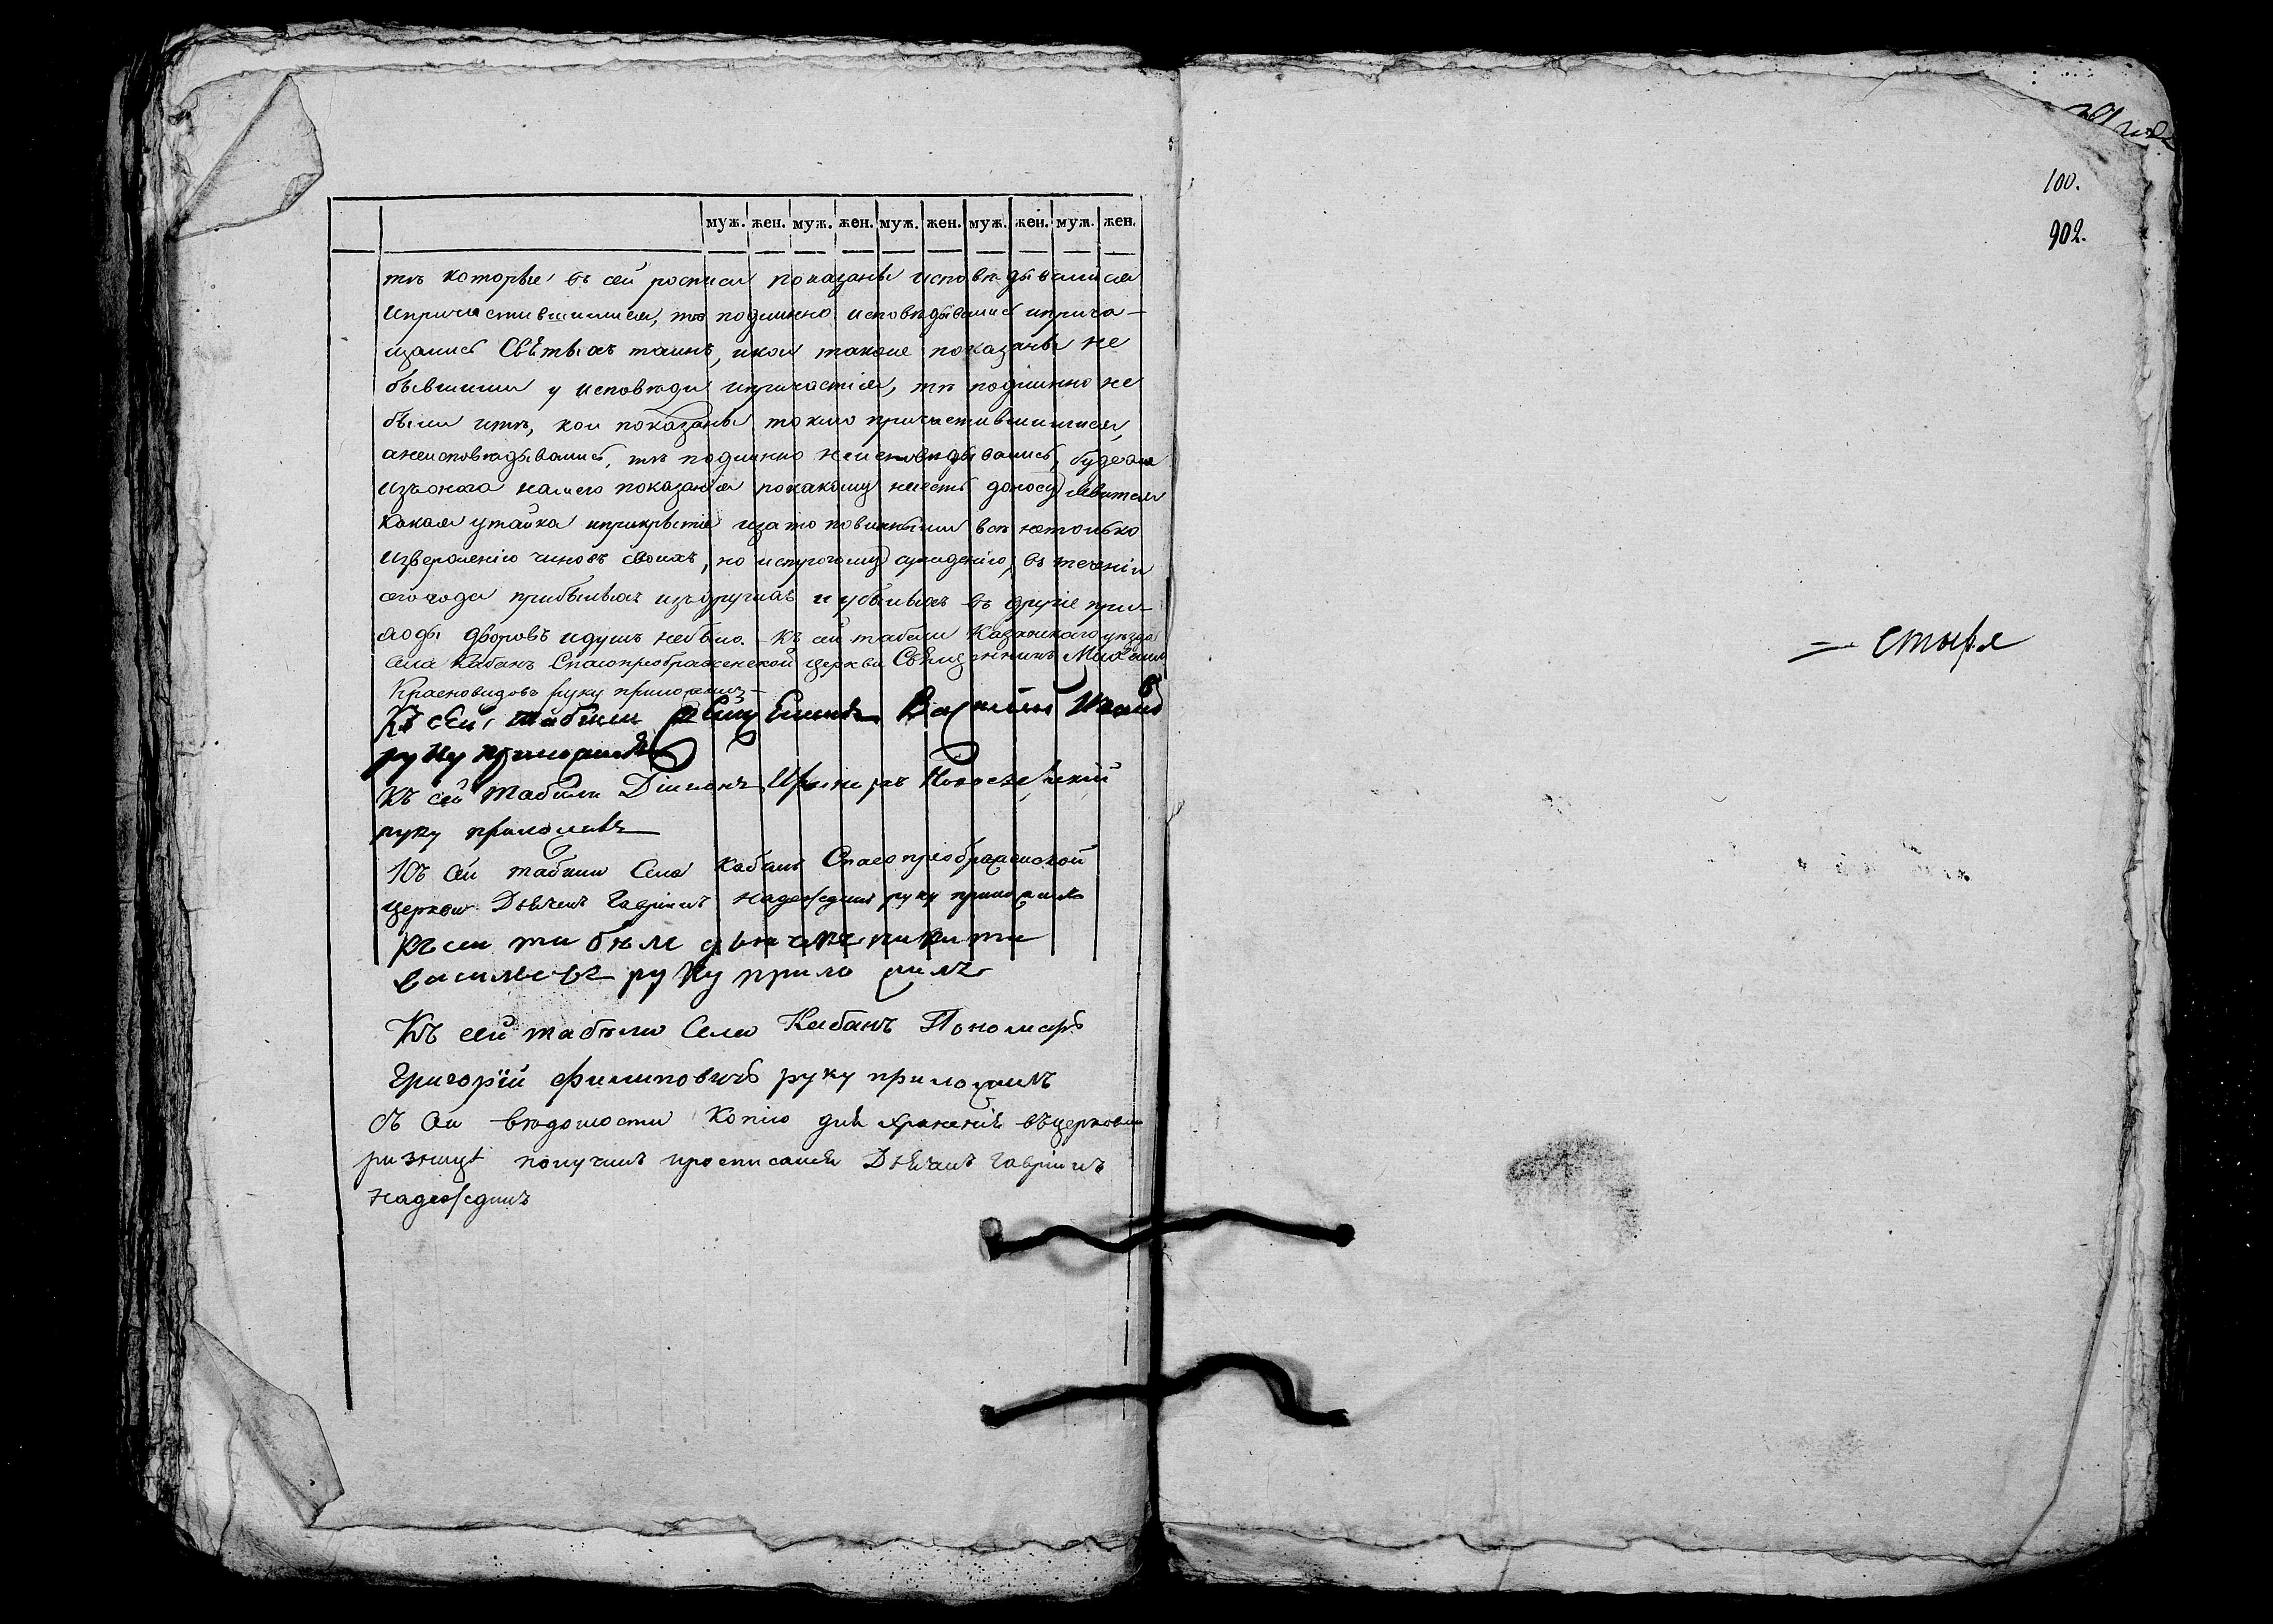 муж. жен. муж. жен. муж. жен. муж. жен. муж. жен.
тѣ которые въ сей росписи показаны исповѣдывались
ипричастившимися, тѣ подлинно исповѣдывались иприча-
щались Святыхъ таинъ, икои такоже показаны не
бывшими у исповѣди ипричастія, тѣ подлинно не
были итѣ, кои показаны токмо причастившимися,
анеисповѣдывались, тѣ подлинно неисповѣдывались, буде же
изъонаго нашего показанія покакому нибудь доносу явится
какая утайка иприкрытіе изато повинными всѣ нетолько
изверженію чиновъ своихъ, но истрогому сужденію, въ теченіи
сегогода прибылыхъ издругихъ и убылыхъ въ другіе при-
ходы дворовъ идушъ небыло. Къ сей табели Казанскаго уѣзда
села Кабанъ Спасопреображенской церкви Священникъ Михаилъ
Красновидовъ руку приложилъ
Къ сей табели Священникъ Василій Ивановъ
руку приложилъ
Къ сей табели Діаконъ
руку приложилъ
Къ сей табели Села Кабанъ Спасопреображенской
церкви Дьячекъ Гавріилъ Надеждинъ руку приложилъ
къ сеи табѣли дьячекъ никита
василь­евъ руку приложилъ
Къ сей табѣли Села Кабанъ Пономарь
Григорій Филиповичь руку приложилъ
Съ сей вѣдомости копію для храненія въцерковной
ризницѣ получилъ иросписался Дьячекъ Гавріилъ
Надеждинъ
100.
902.